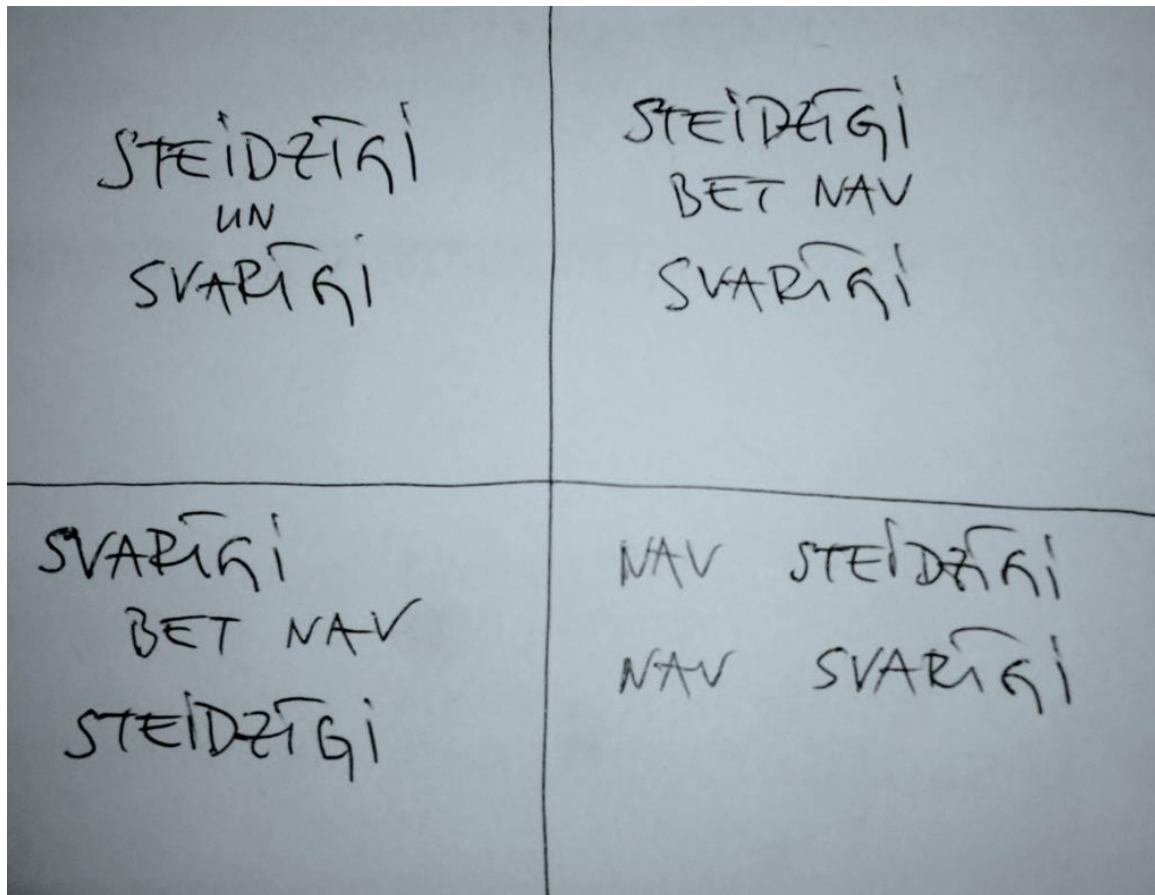 STEIDZĪGI
UN
SVARĪGI
STEIDZĪGI
BET NAV
SVARĪGI
SVARĪGI
BET NAV
STEIDZĪGI
NAV STEIDZĪGI
NAV SVARĪGI